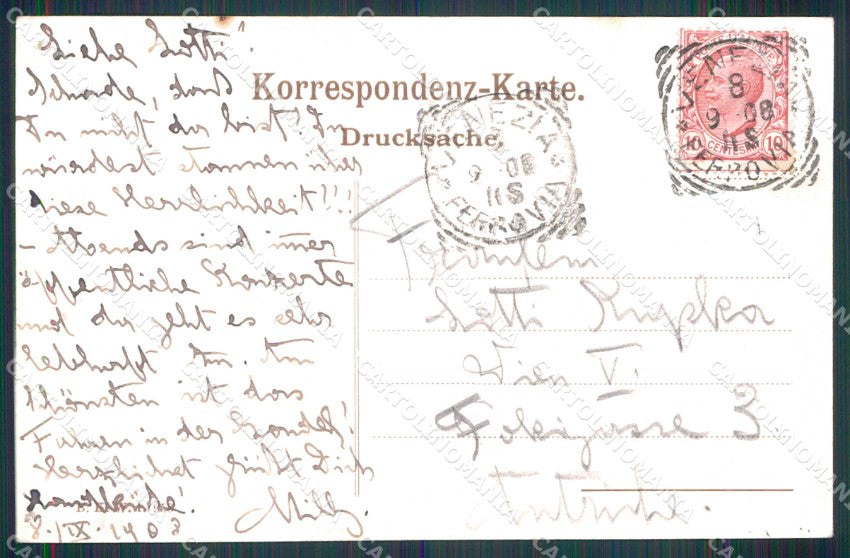 Liebe Lotti!
Schade, daß
Du nicht da bist! Du
würdest staunen über
diese Herrlichkeit!!!
– Abends sind immer
öffentliche Konzerte
und da geht es sehr
lebhaft zu. Am
schönsten ist das
Fahren in der Gondel!
Herzlichst grüßt Dich
Milly
8./IX. 1908
Korrespondenz-Karte.
Drucksache.
VENEZIA
9 08
11S
FERROVIA
VENEZIA
8
9 08
11S
FERROVIA
10 CENTESIMI 10
Fräulein
Lotti Krupka
Wien V.
gasse 3